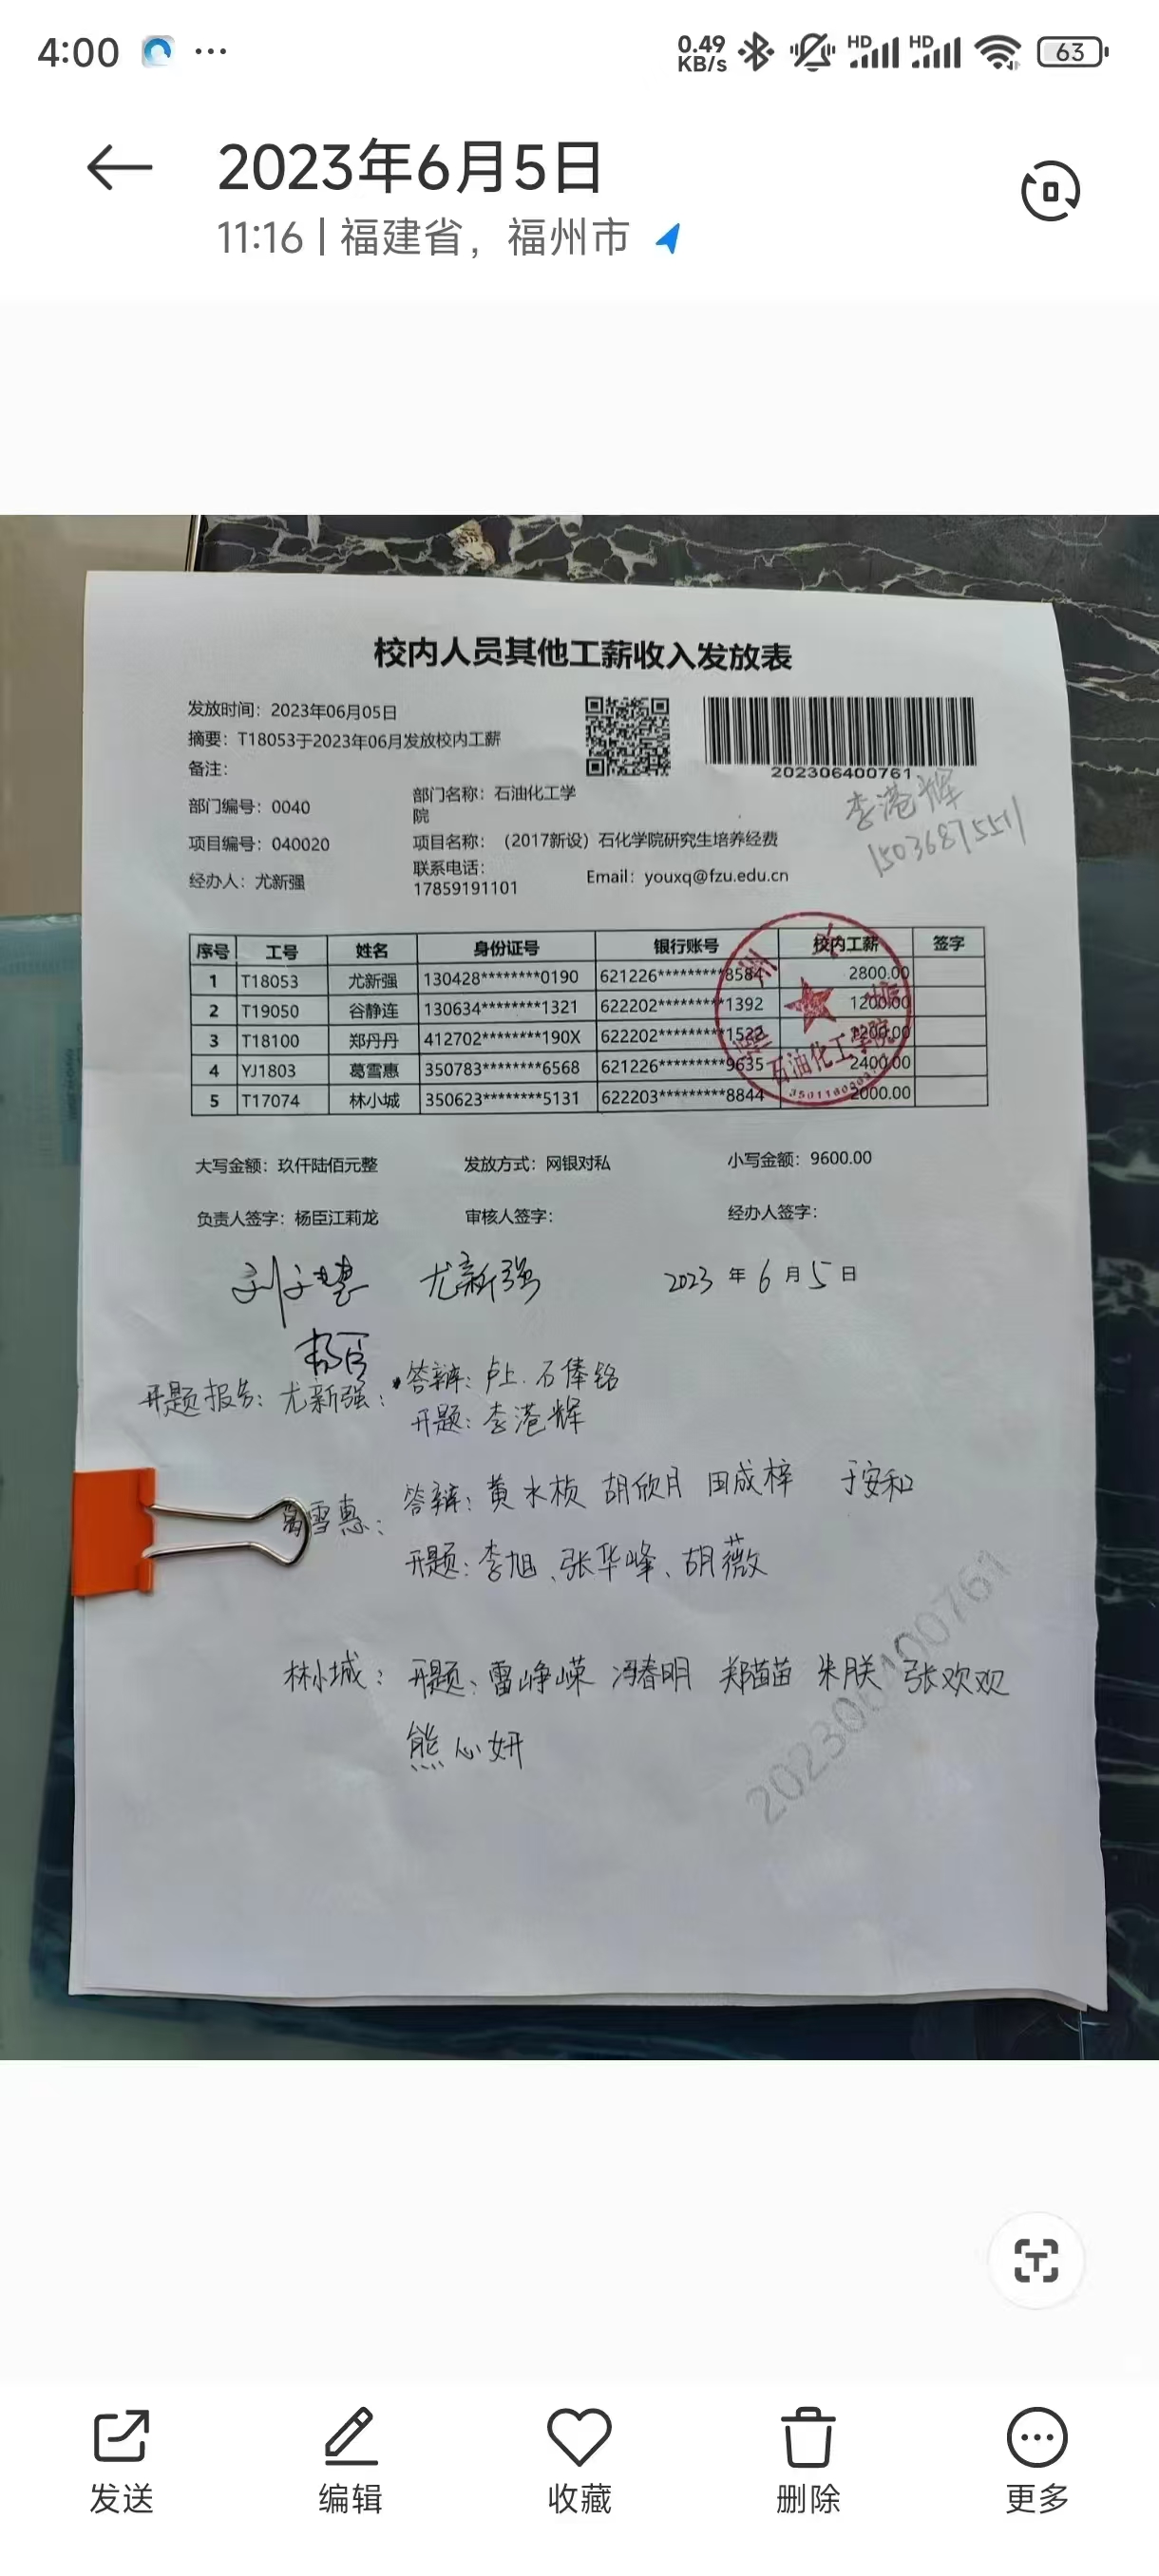 4:00 ... 0.49 KB/s HD HD 63
2023年6月5日
11:16 | 福建省，福州市
校内人员其他工薪收入发放表
发放时间：2023年06月05日
摘要：T18053于2023年06月发放校内工薪
备注：
202306400761
李港辉
15036875511
部门编号：0040 部门名称：石油化工学
院
项目编号：040020 项目名称：（2017新设）石化学院研究生培养经费
经办人：尤新强 联系电话：
17859191101 Email：youxq@fzu.edu.cn
序号 工号 姓名 身份证号 银行账号 校内工薪 签字
1 T18053 尤新强 130428********0190 621226*********8584 2800.00
2 T19050 谷静连 130634********1321 622202*********1392 1200.00
3 T18100 郑丹丹 412702********190X 622202*********1522 1200.00
4 YJ1803 葛雪惠 350783********6568 621226*********9635 2400.00
5 T17074 林小城 350623********5131 622203*********8844 2000.00
石油化工学院
大写金额：玖仟陆佰元整 发放方式：网银对私 小写金额：9600.00
负责人签字：杨臣江莉龙 审核人签字： 经办人签字：
尤新强 2023 年 6 月 5 日
杨臣
开题报告：尤新强：答辩：卢上.石俸铭
开题：李港辉
葛雪惠：答辩：黄水桢 胡欣月 田成梓 于安和
开题：李旭、张华峰、胡薇
林小城：开题：雷峥嵘 冯春明 郑苗苗 朱朕 张欢欢
熊心妍
202306400761
发送 编辑 收藏 删除 更多